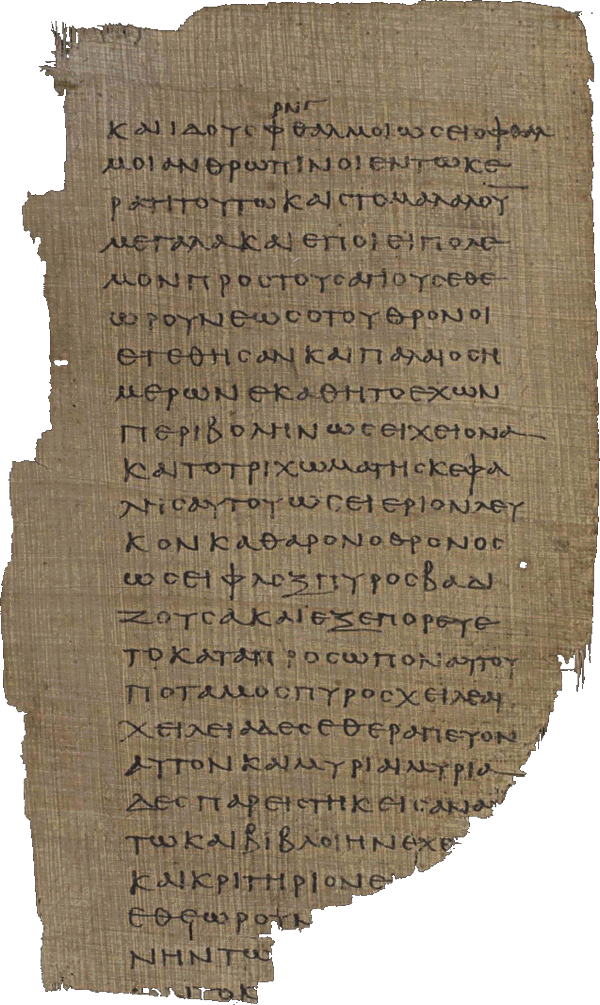 ρνγ
καιιδουοφθαλμοιωσειοφθαλ
μοιανθρωπινοιεντωκε
ρατιτουτωκαιστομαλαλου
μεγαλακαιεποιειπολε
μονπροστουσαγιουσεθε
ωρουνεωσοτουθρονοι
ετεθησανκαιπαλαιοσημ
μερωνεκαθητοεχων
περιβοληνωσειχειονα
καιτοτριχωματησκεφα
λησαυτουωσειεριονλευ
κονκαθαρονοθρονοσ
ωσειφλοξπυροσβαδι
ζουσακαιεξεπορευε
τοκαταπροσωποναυτου
ποταμοσπυροσχειλεαι
χειλειαδεσεθεραπευον
αυτονκαιμυριαιμυρια
δεσπαρειστηκεισαναυ
τωκαιβιβλοιηνεχθ
καικριτηριονε
εθεωρουν
νηντω